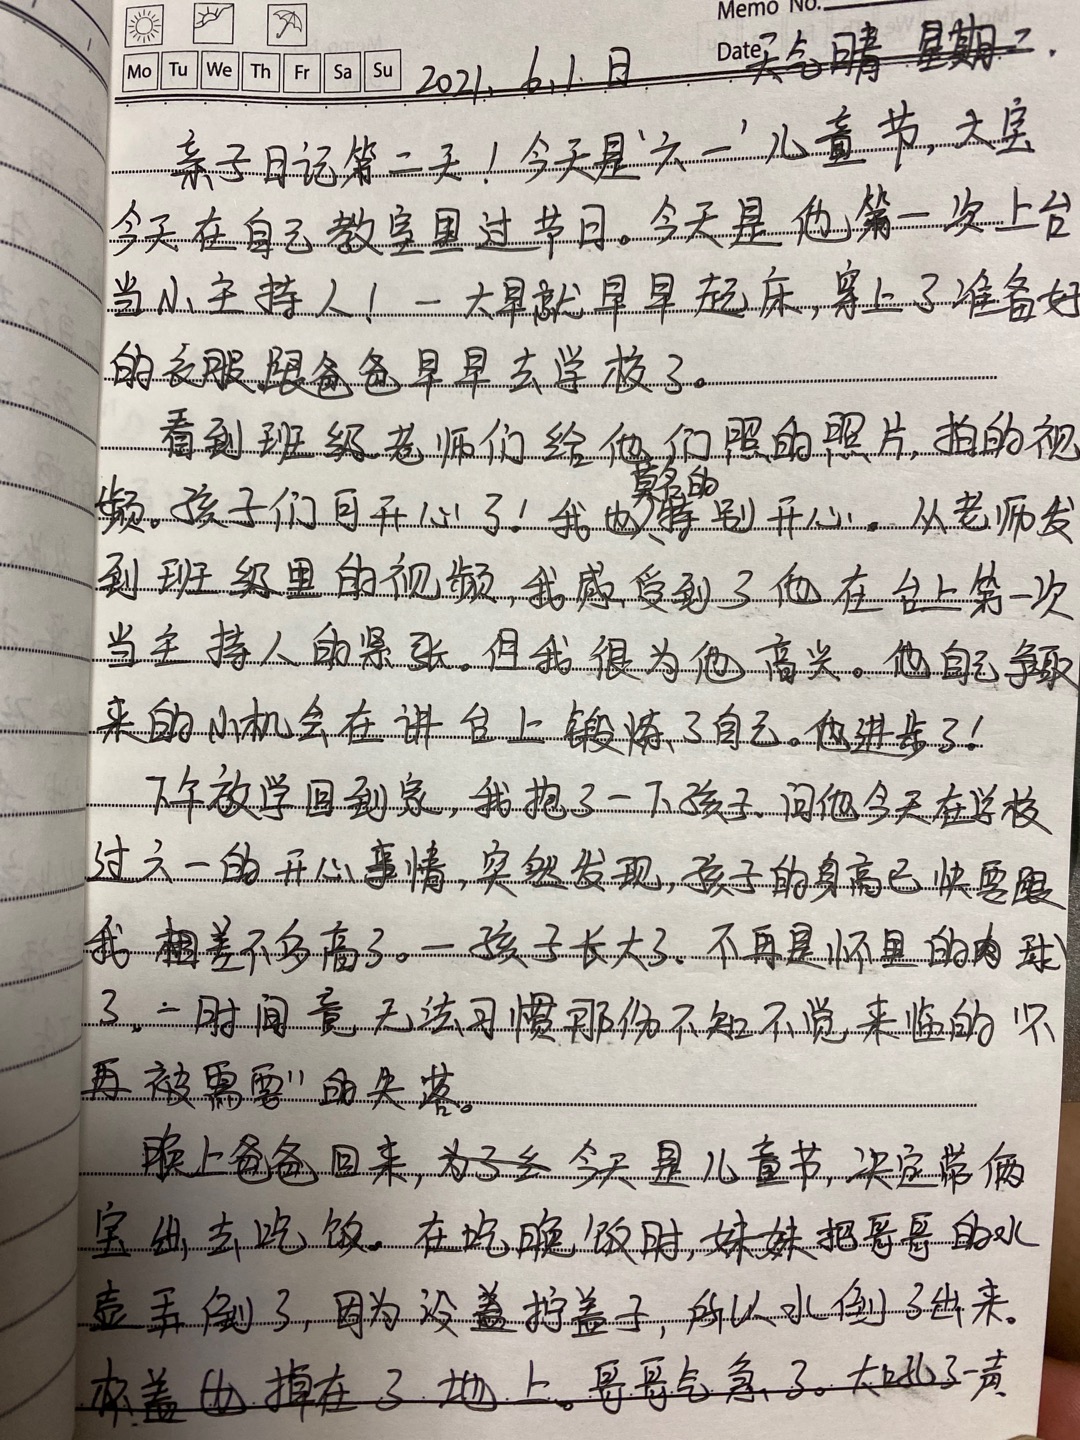 Memo No.
Mo Tu We Th Fr Sa Su
Date
2021. 6. 1日 天气晴 星期二.
亲子日记第二天！今天是‘六一’儿童节，大宝
今天在自己教室里过节日。今天是他第一次上台
当小主持人！一大早就早早起床，穿上了准备好
的衣服跟爸爸早早去学校了。
看到班级老师们给他们照的照片，拍的视
频。孩子们可开心了！我也莫名的特别开心。从老师发
到班级里的视频，我感受到了他在台上第一次
当主持人的紧张。但我很为他高兴。他自己争取
来的小机会在讲台上锻炼了自己。他进步了！
下午放学回到家，我抱了一下孩子、问他今天在学校
过六一的开心事情，突然发现，孩子的身高已快要跟
我相差不多高了。一孩子长大了、不再是怀里的肉球
了。一时间竟无法习惯那份不知不觉来临的“不
再被需要”的失落。
晚上爸爸回来，今天是儿童节，决定带俩
宝出去吃饭。在吃晚饭时，妹妹把哥哥的水
壶弄倒了，因为没盖拧盖子，所以水倒了出来。
杯盖也掉在了地上。哥哥气急了。大吼了一声